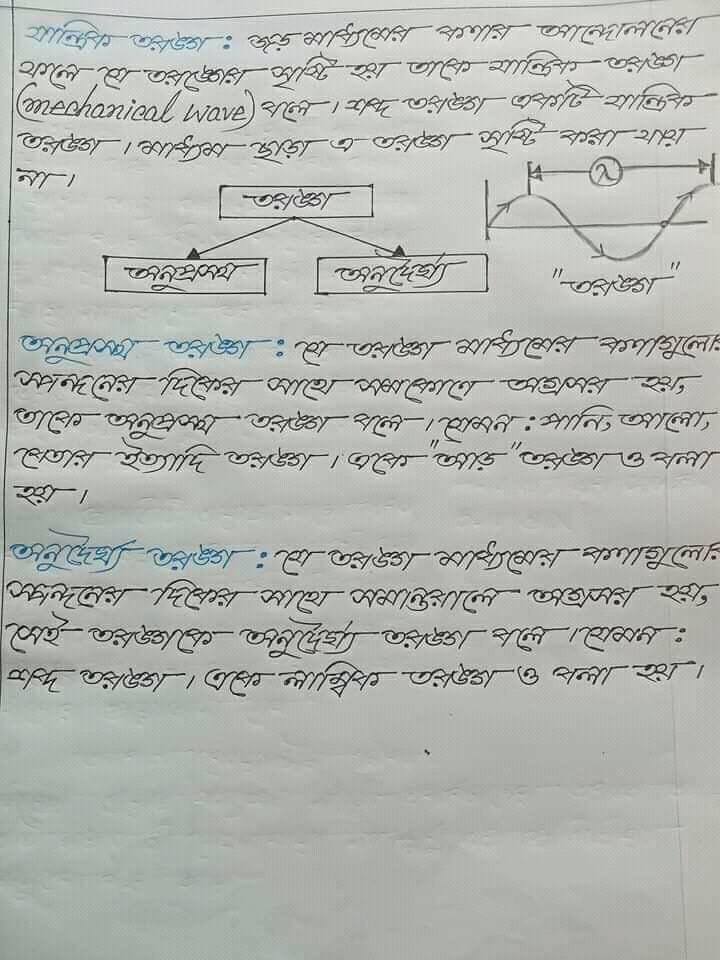 যান্ত্রিক তরঙ্গ : জড় মাধ্যমের কণার আন্দোলনের
ফলে যে তরঙ্গের সৃষ্টি হয় তাকে যান্ত্রিক তরঙ্গ
(mechanical wave) বলে। শব্দ তরঙ্গ একটি যান্ত্রিক
তরঙ্গ। মাধ্যম ছাড়া এ তরঙ্গ সৃষ্টি করা যায়
না।
তরঙ্গ
λ
অনুপ্রস্থ
অনুদৈর্ঘ্য
"তরঙ্গ"
অনুপ্রস্থ তরঙ্গ : যে তরঙ্গ মাধ্যমের কণাগুলোর
স্পন্দনের দিকের সাথে সমকোণে অগ্রসর হয়,
তাকে অনুপ্রস্থ তরঙ্গ বলে। যেমন : পানি, আলো,
বেতার ইত্যাদি তরঙ্গ। একে "আড়" তরঙ্গ ও বলা
হয়।
অনুদৈর্ঘ্য তরঙ্গ : যে তরঙ্গ মাধ্যমের কণাগুলোর
স্পন্দনের দিকের সাথে সমান্তরালে অগ্রসর হয়,
সেই তরঙ্গকে অনুদৈর্ঘ্য তরঙ্গ বলে। যেমন :
শব্দ তরঙ্গ। একে লাম্বিক তরঙ্গ ও বলা হয়।